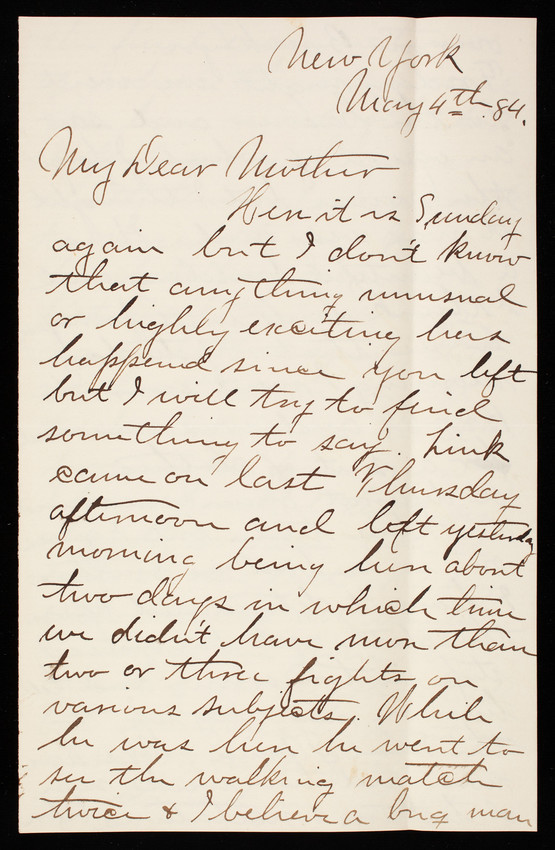 New York
May 4th 84.
My Dear Mother
Here it is Sunday
again but I don't know
that anything unusual
or highly exciting has
happend since you left
but I will try to find
something to say. Link
came on last Thursday
afternoon and left yesterday
morning being here about
two days in which time
we didn't have more than
two or three fights on
various subjects. While
he was here he went to
see the walking match
twice & I believe a man